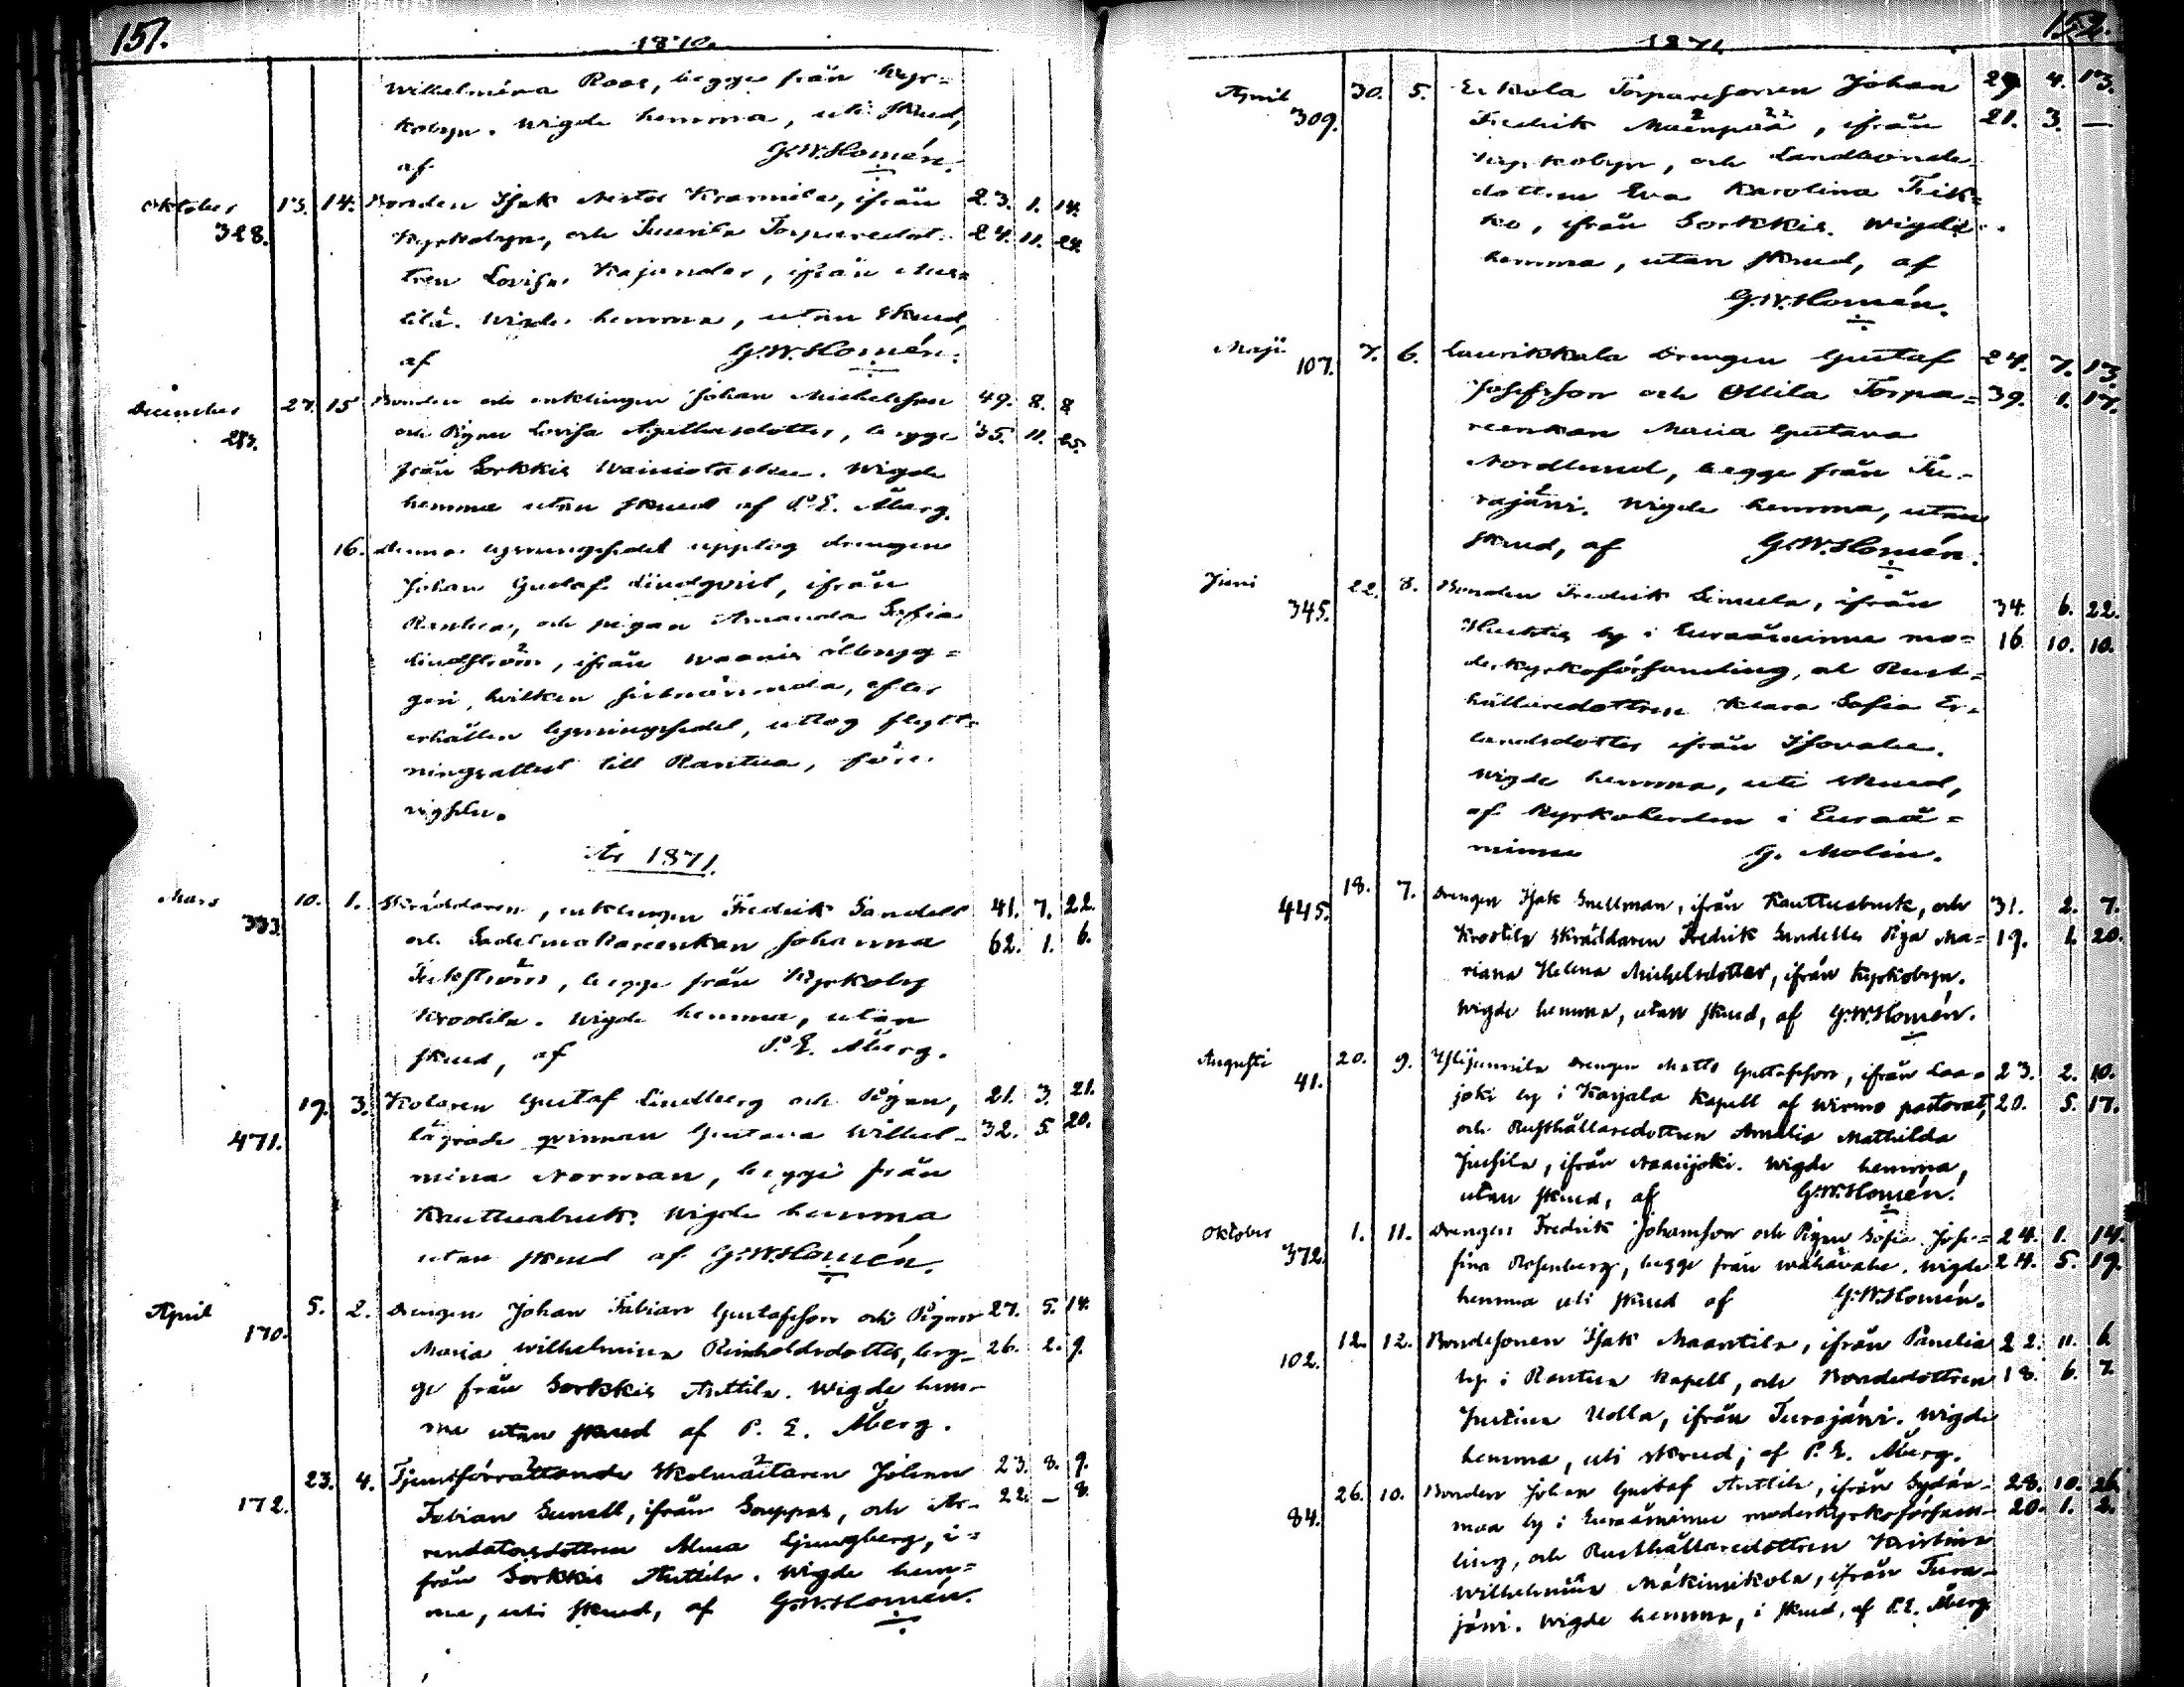 151.
1870.
Wilhelmina Roos, begge från Kyr=
kobyn. Wigde hemma, uti skrud,
af G.W. Homén.
Oktober 13. 14. Bonden Isak Nestor Krannila, ifrån 23. 1. 14.
328. Kyrkobyn, och Torparedot- 24. 11. 24.
tren Lovisa Kajander, ifrån
Wigde hemma, utan skrud,
af G.W. Homén.
December 27. 15 Bonden och enklingen Johan Michelsson 49. 8. 8
283. och Pigan Lovisa begge 35. 11. 25.
från Sorkkis Wigde
hemma utan skrud af P. E. Åberg.
16. lysningssedel upptog drengen
Johan Gustaf Lindqvist, ifrån
och pigan Amanda Sofia
Lindström, ifrån
gen, hvilken sistnämnda, efter
erhållen lysningssedel, uttog flytt=
ningsattest till Rantila, före
vigseln.
År 1871.
Mars 10. 1. Skräddaren, enklingen Fredrik Sandell 41. 7. 22.
333. och Sadelmakareenkan Johanna 62. 1. 6.
begge från Kyrkoby
Krostila. Wigde hemma, utan
skrud, af P. E. Åberg.
19. 3. Kolaren Gustaf Lindberg och Pigan, 21. 3. 21.
471. lägrade qvinnan Gustava Wilhel- 32. 5. 20.
mina Norman, begge från
Kauttuabruk. Wigde hemma
utan skrud af G.W. Homén.
April 5. 2. Drengen Johan Fabian Gustafsson och Pigan 27. 5. 14.
170. Maria Wilhelmina Reinholdsdotter, beg- 26. 2. 9.
ge från Sorkkis Anttila. Wigde hem-
ma utan skrud af P. E. Åberg.
23. 4. Tjensförrättande Skolmästaren Johan 23. 8. 9.
172. Fabian Sunell, ifrån Souppas, och Ar- 22. — 8.
rendatorsdottren Alma Ljungberg, i=
från Sorkkis Anttila. Wigde hem=
ma, uti skrud, af G.W. Homén.
152.
1871.
April 30. 5. Eskola Torparesonen Johan 29 4. 13.
309. Fredrik Mäenpää, ifrån 21. 3. —
Kyrkobyn, och Landbonde-
dottren Eva Karolina Frik-
ko, ifrån Sorkkis. Wigde
hemma, utan skrud, af
G.W. Homén.
Maji 7. 6. Laurikkala Drengen Gustaf 24. 7. 13.
107. Josefsson och Ollila Torpa= 39. 1. 17.
reenkan Maria Gustava
Nordlund, begge från Tu-
rajärvi. Wigde hemma, utan
skrud, af G.W. Homén.
Juni 22. 8. Bonden Fredrik Simula, ifrån 34. 6. 22.
345. by i Euraåminne mo= 16 10. 10.
derkyrkoförsamling, ol Rust=
hållaredottren Klara Sofia Er=
landsdotter ifrån Isovahe.
Wigde hemma, uti skrud,
af Kyrkoherden i Euraå=
minne G. Molin.
18. 7. Drengen Isak Snellman, ifrån Kauttuabruk, och 31. 2. 7.
445. Krostila Skräddaren Fredrik Sandells Piga Ma= 19. 1. 20.
riana Helena Michelsdotter, ifrån Kyrkobyn.
Wigde hemma, utan skrud, af G.W. Homén.
Augusti 20. 9. Ylijunnila Drengen Matts Gustafsson, ifrån Laa= 23. 2. 10.
41. joki by i Karjala Kapell af Wirmo pastorat, 20. 5. 17.
och Rusthållaredottren Amalia Mathilda
Jussila, ifrån Naarijoki. Wigde hemma,
utan skrud, af G.W. Homén.
Oktober 1. 11. Drengen Fredrik Johansson och Pigan Sofia Jose= 24. 1. 14.
372. fina Rosenberg, begge från Wähävahe. Wigde 24. 5. 19.
hemma uti skrud af G.W. Homén.
12. 12. Bondesonen Isak Maantila, ifrån Panelia 22. 11. 6.
102. by i Kapell, och Bondedottren 18. 6. 7.
Justina Uolla, ifrån Turajärvi. Wigde
hemma, uti skrud, af P. E. Åberg.
26. 10. Bonden Johan Gustaf Anttila, ifrån Sydän- 28. 10. 26.
84. maa by i Euraåminne moderkyrkoförsam- 20. 1. 2.
ling, och Rusthållaredottren Kristina
Wilhelmina Mäkimikola, ifrån Tura-
järvi. Wigde hemma, i skrud, af P. E. Åberg.